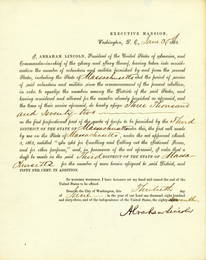 EXECUTIVE MANSION,
Washington, D. C., June 30th 186
I, ABRAHAM LINCOLN, President of the United States of America, and
Commander-in-chief of the Army and Navy thereof, having taken into consideration the number of volunteers and militia furnished by and from the several
States, including the State of Massachusetts and the period of service
of said volunteers and militia since the commencement of the present rebellion,
in order to equalize the numbers among the Districts of the said States, and
having considered and allowed for the number already furnished as aforesaid, and
the time of their service aforesaid, do hereby assign Three Thousand
and Seventy Two
as the first proportional part of the quota of troops to be furnished by the Third
DISTRICT OF THE STATE OF Massachusetts under this, the first call made
by me on the State of Massachusetts, under the act approved March
3, 1863, entitled "An Act for Enrolling and Calling out the National Forces,
and for other purposes," and, in pursuance of the act aforesaid, I order that a
draft be made in the said Third DISTRICT OF THE STATE OF Massa
chusetts for the number of men herein assigned to said District, and
FIFTY PER CENT. IN ADDITION.
IN WITNESS WHEREOF, I have hereunto set my hand and caused the seal of the
United States to be affixed.
Done at the City of Washington, this Thirtieth
day of June, in the year of our Lord one thousand eight hundred
and sixty-three, and of the independence of the United States, the eighty-seventh
Abraham Lincoln